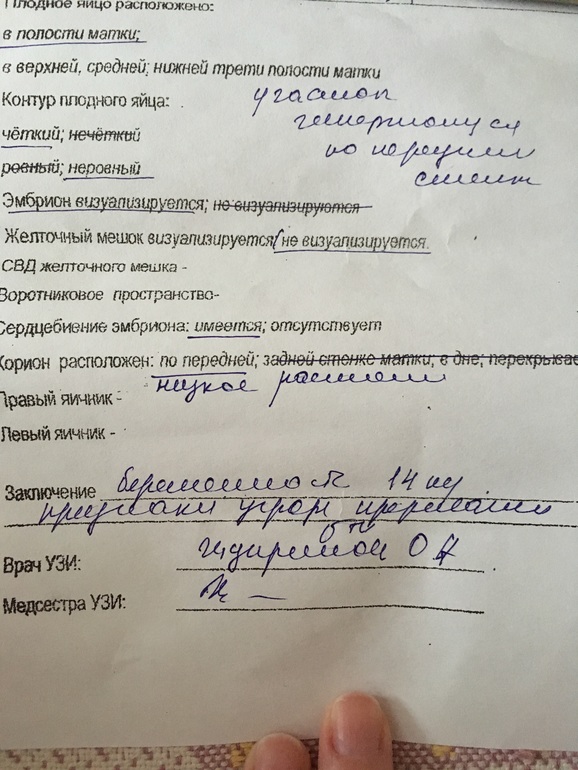 Плодное яйцо расположено:
в полости матки;
в верхней, средней; нижней трети полости матки
Контур плодного яйца:
чёткий; нечёткий
ровный; неровный
гипертонус
по передней
стенке
Эмбрион визуализируется; не визуализируются
Желточный мешок визуализируется/не визуализируется.
СВД желточного мешка -
Воротниковое пространство-
Сердцебиение эмбриона: имеется; отсутствует
Хорион расположен: по передней; задней стенке матки; в дне; перекрывае
низкое располож
Правый яичник -
Левый яичник -
Заключение беременность 14 нед
признаки угрозы прерывания
Врач УЗИ:
Медсестра УЗИ: